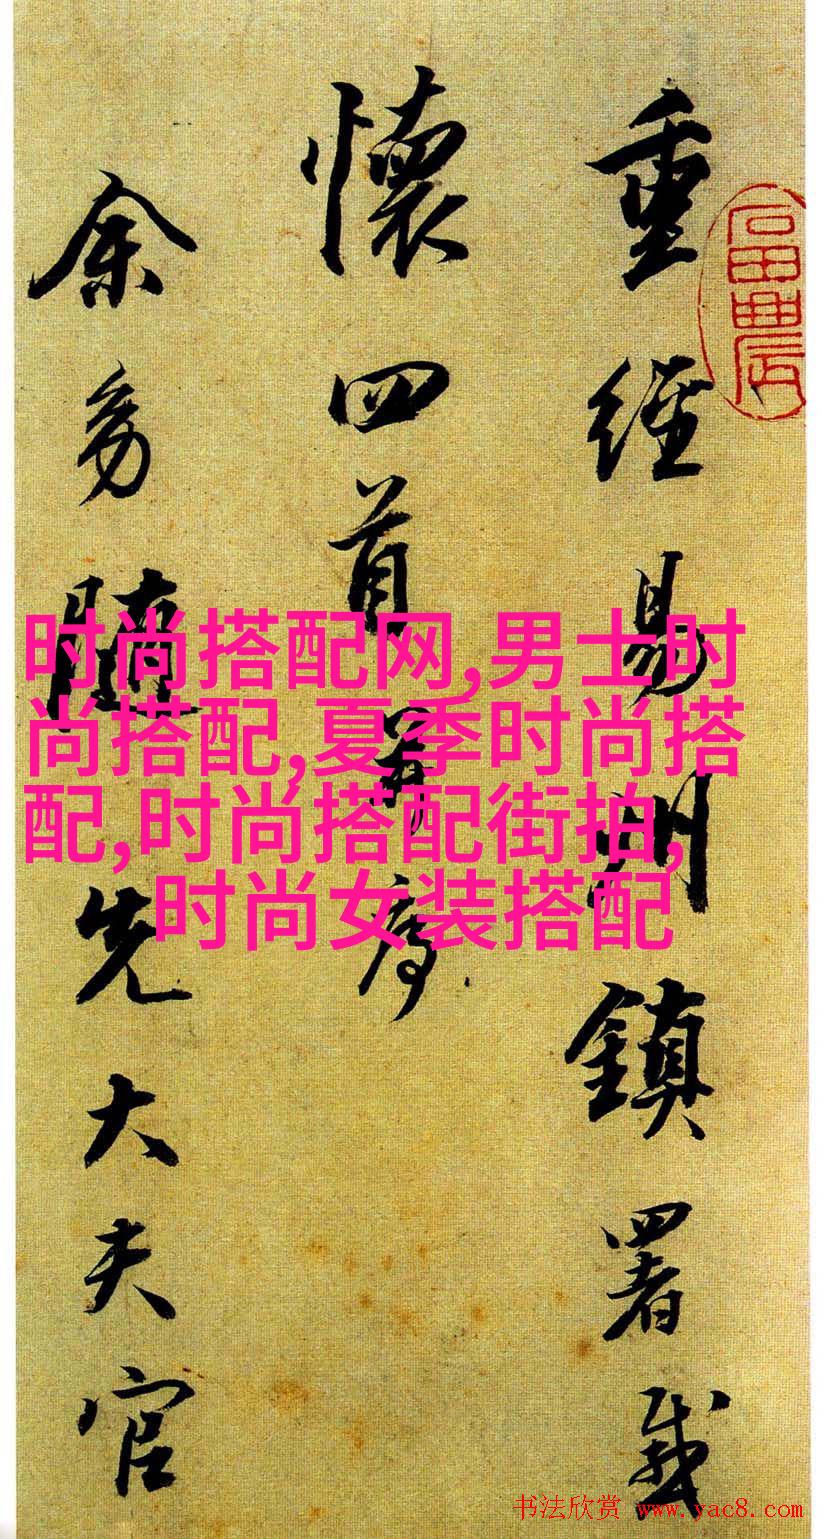 重經易州鎮署感
懷四首並序
余幼隨先大夫官
石田農
时尚搭配网,男士时
尚搭配,夏季时尚搭
配,时尚搭配街拍,
时尚女装搭配
书法欣赏 www.yac8.com